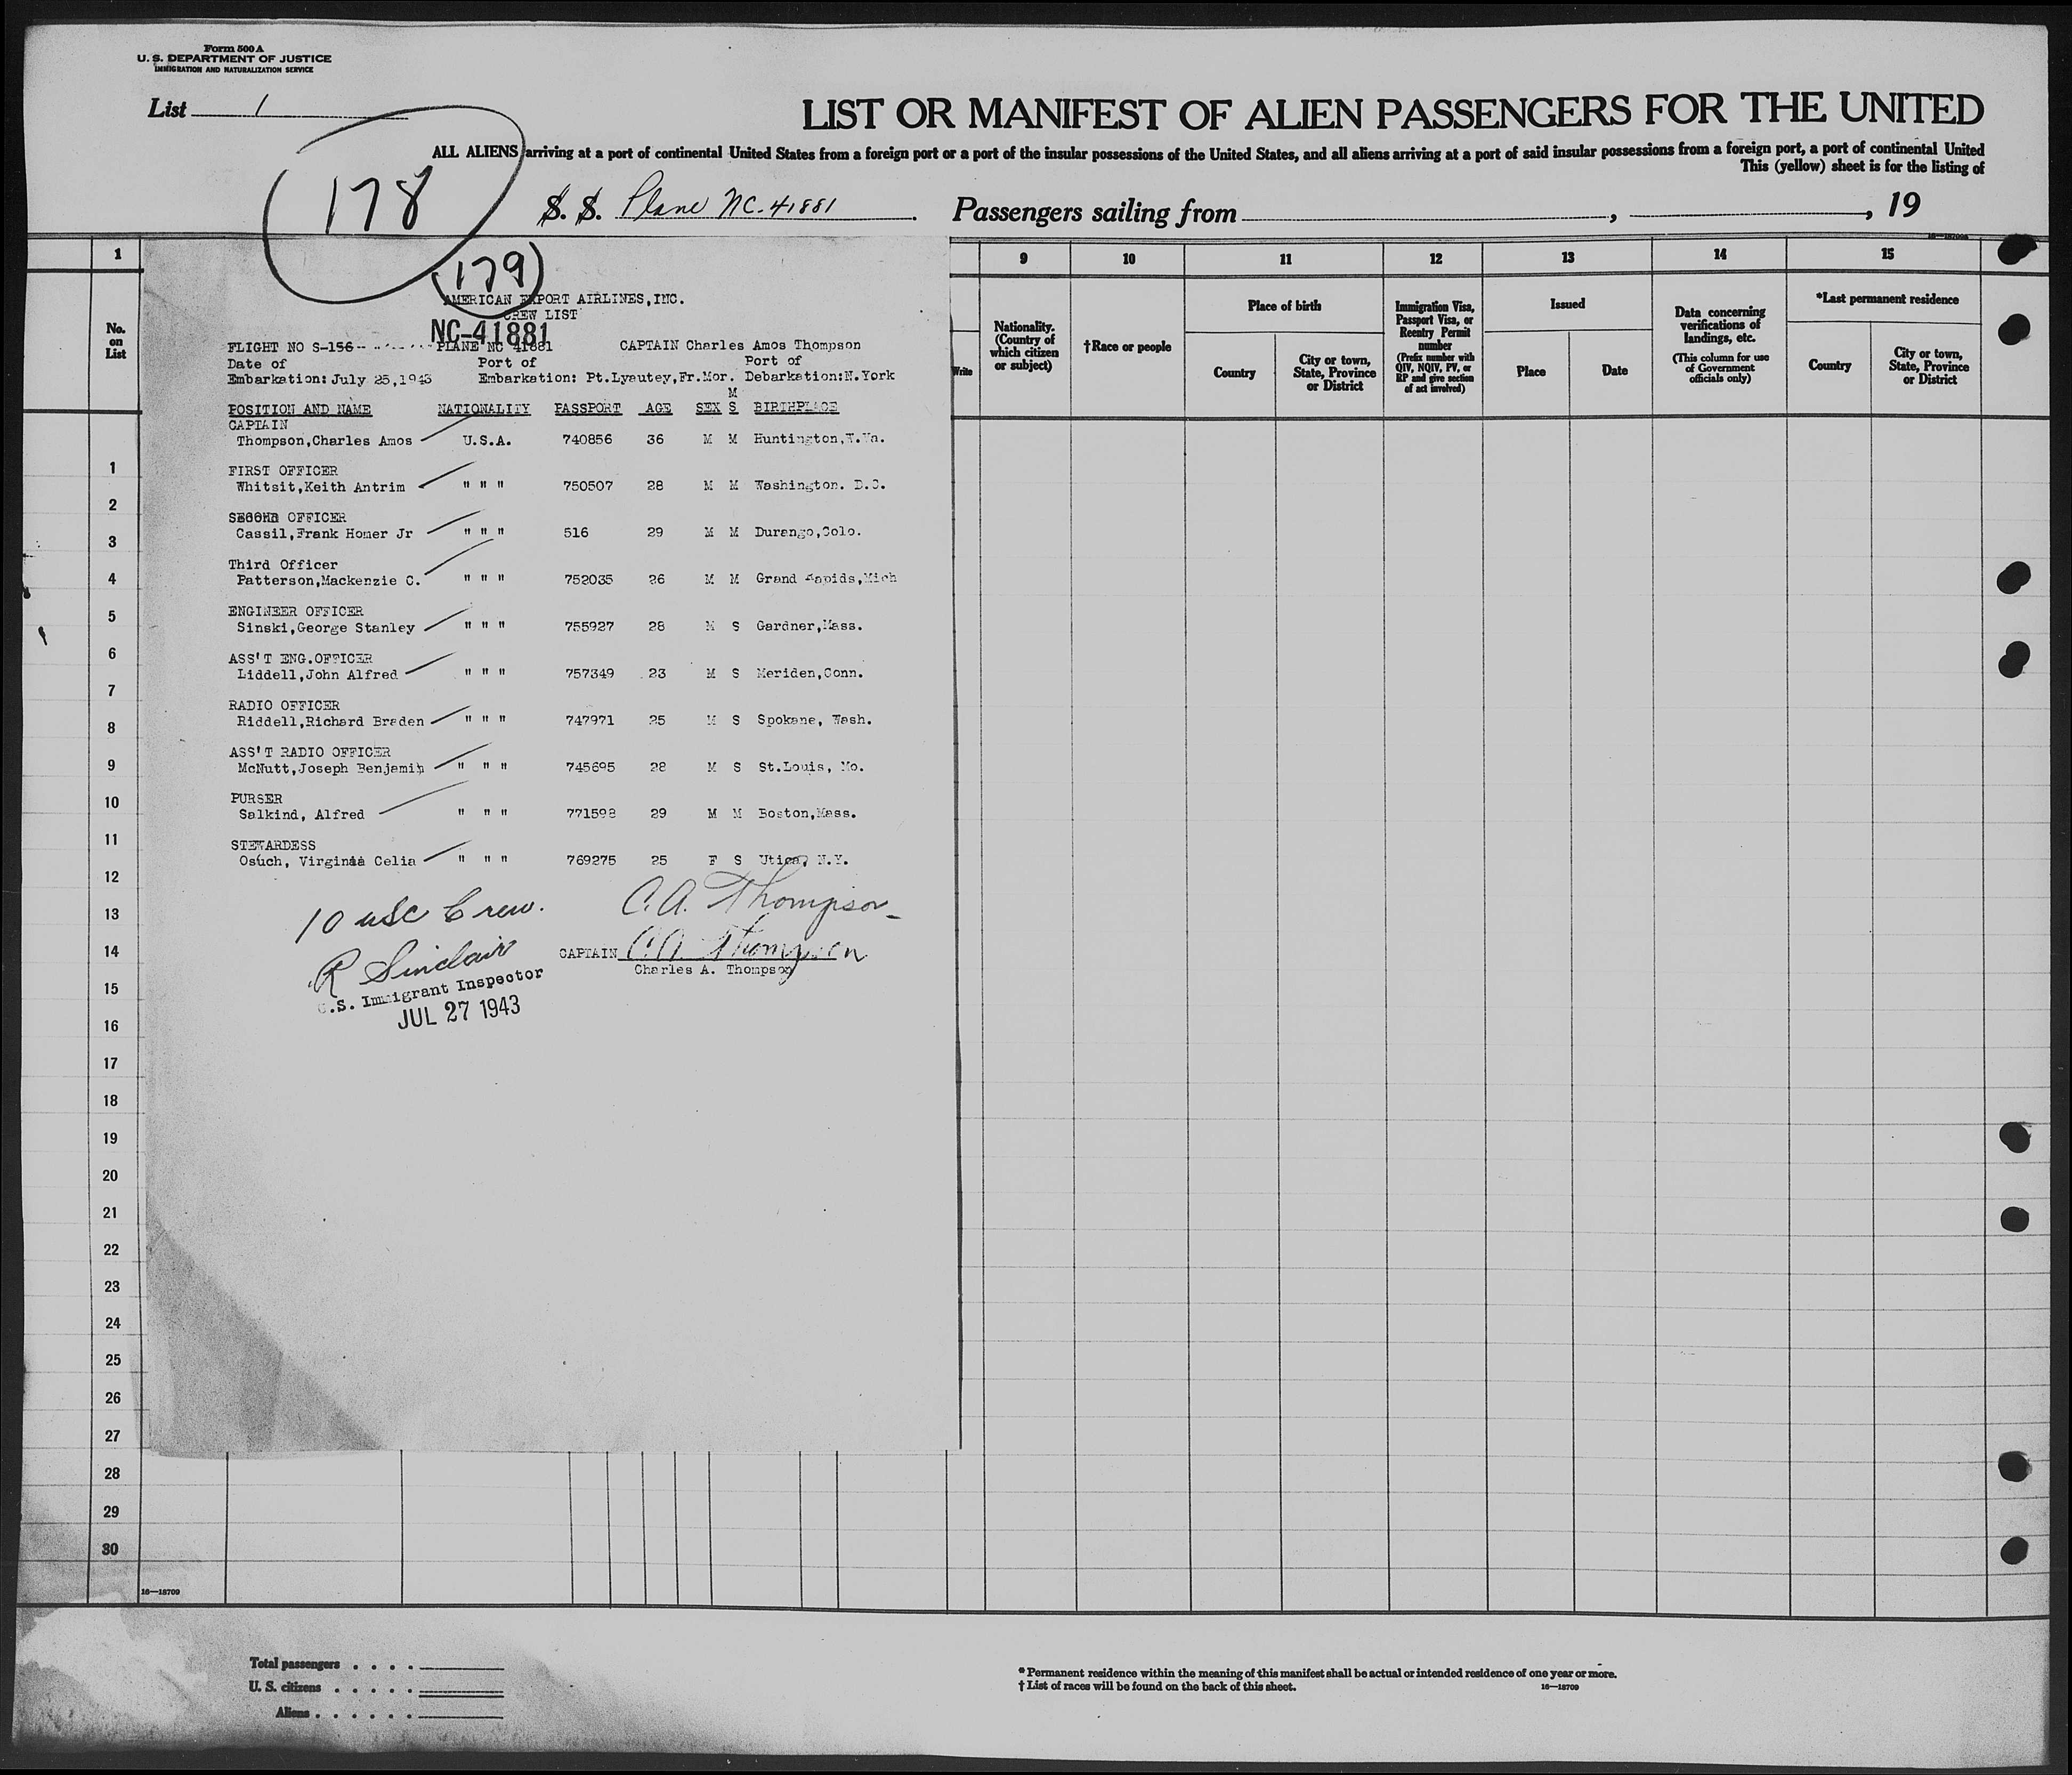 Form 500 A
U. S. DEPARTMENT OF JUSTICE
IMMIGRATION AND NATURALIZATION SERVICE
List 1
LIST OR MANIFEST OF ALIEN PASSENGERS FOR THE UNITED
ALL ALIENS arriving at a port of continental United States from a foreign port or a port of the insular possessions of the United States, and all aliens arriving at a port of said insular possessions from a foreign port, a port of continental United
This (yellow) sheet is for the listing of
178
S. S. Plane NC-41881. Passengers sailing from , , 19
1 9 10 11 12 13 14 15
No. on List
Write
Nationality. (Country of which citizen or subject)
†Race or people
Place of birth
Country
City or town, State, Province or District
Immigration Visa, Passport Visa, or Reentry Permit number
(Prefix number with QIV, NQIV, PV, or RP and give section of act involved)
Issued
Place
Date
Data concerning verifications of landings, etc.
(This column for use of Government officials only)
*Last permanent residence
Country
City or town, State, Province or District
(179)
AMERICAN EXPORT AIRLINES, INC.
CREW LIST
NC-41881
FLIGHT NO S-156 PLANE NC 41881 CAPTAIN Charles Amos Thompson
Date of Port of Port of
Embarkation: July 25,1943 Embarkation: Pt.Lyautey,Fr.Mor. Debarkation:N.York
M
POSITION AND NAME NATIONALITY PASSPORT AGE SEX S BIRTHPLACE
CAPTAIN
Thompson,Charles Amos U.S.A. 740856 36 M M Huntington,W.Va.
FIRST OFFICER
Whitsit,Keith Antrim " " " 750507 28 M M Washington. D.C.
SECOND OFFICER
Cassil,Frank Homer Jr " " " 516 29 M M Durango,Colo.
Third Officer
Patterson,Mackenzie C. " " " 752035 26 M M Grand Rapids,Mich
ENGINEER OFFICER
Sinski,George Stanley " " " 755927 28 M S Gardner,Mass.
ASS'T ENG.OFFICER
Liddell,John Alfred " " " 757349 23 M S Meriden,Conn.
RADIO OFFICER
Riddell,Richard Braden " " " 747971 25 M S Spokane, Wash.
ASS'T RADIO OFFICER
McNutt,Joseph Benjamin " " " 745695 28 M S St.Louis, Mo.
PURSER
Salkind, Alfred " " " 771598 29 M M Boston,Mass.
STEWARDESS
Osuch, Virginia Celia " " " 769275 25 F S Utica, N.Y.
10 USC Crew.
C.A. Thompson
R Sinclair
CAPTAIN C.A. Thompson
Charles A. Thompson
U.S. Immigrant Inspector
JUL 27 1943
1
2
3
4
5
6
7
8
9
10
11
12
13
14
15
16
17
18
19
20
21
22
23
24
25
26
27
28
29
30
16—18709
Total passengers . . . .
U. S. citizens . . . . .
Aliens . . . . . .
* Permanent residence within the meaning of this manifest shall be actual or intended residence of one year or more.
† List of races will be found on the back of this sheet.
16—18709